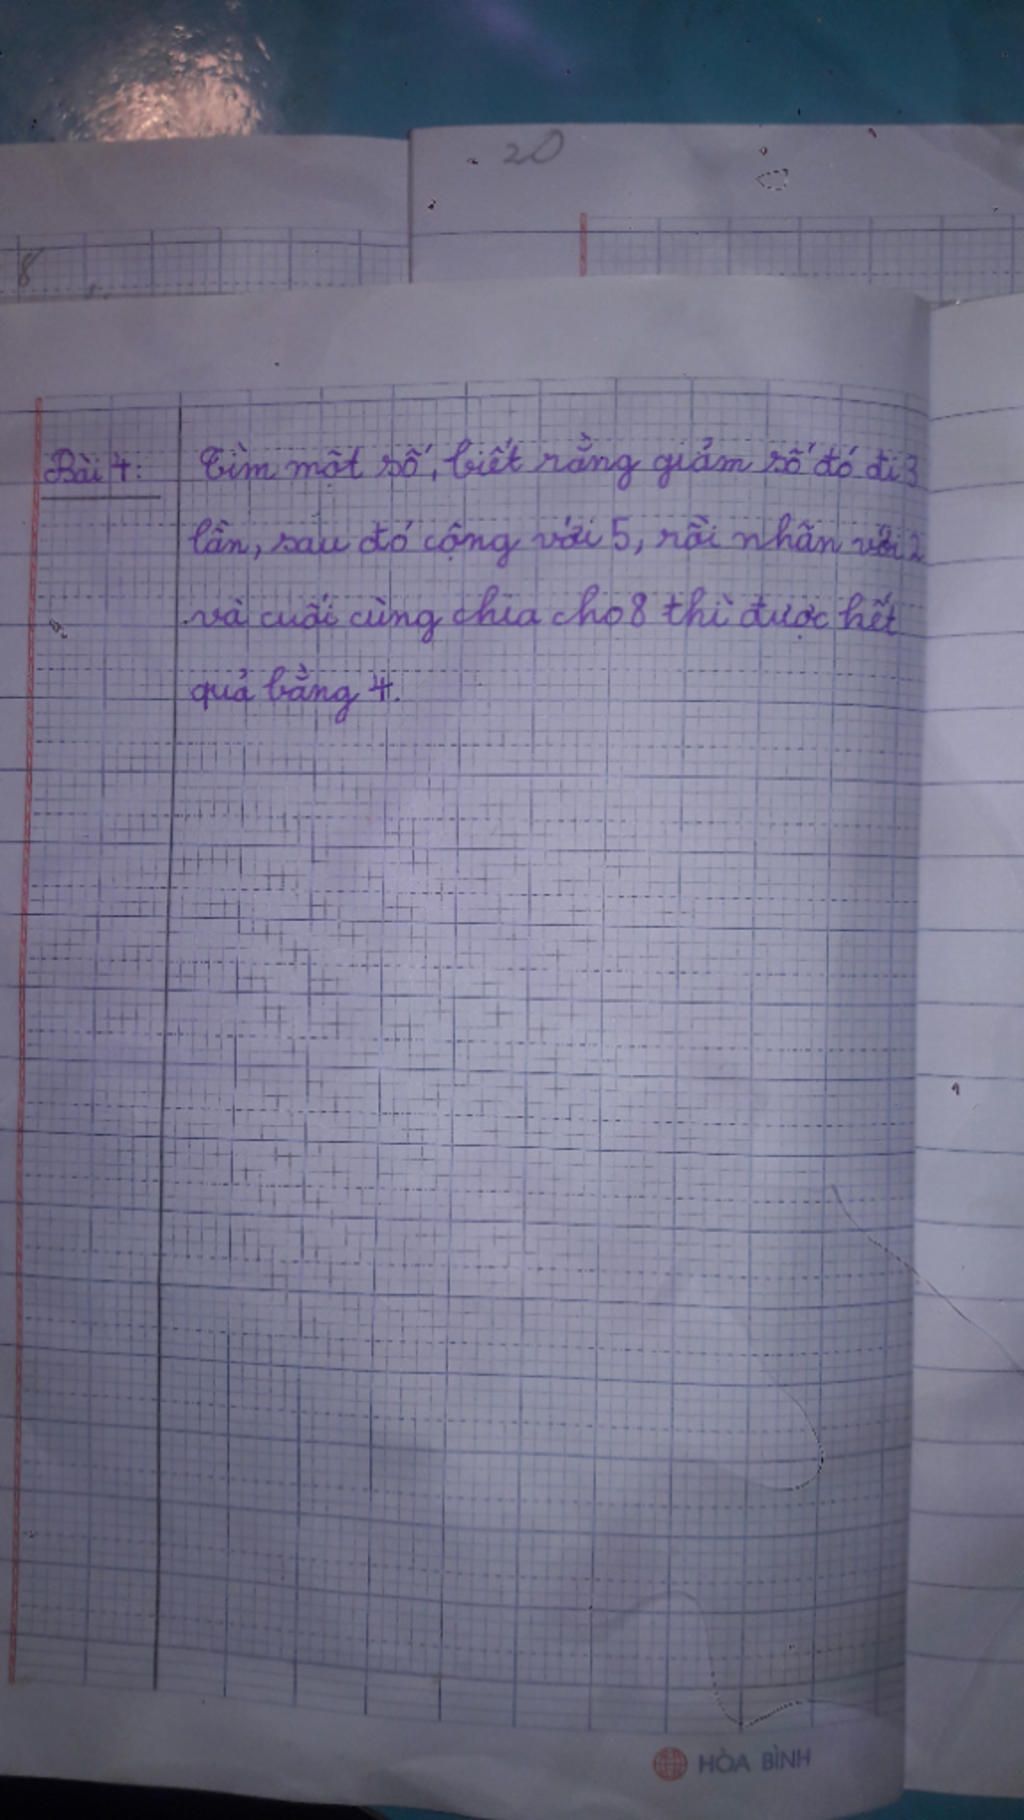 20
8
Bài 4: Tìm một số, biết rằng giảm số đó đi 3
lần, sau đó cộng với 5, rồi nhân với 2
và cuối cùng chia cho 8 thì được kết
quả bằng 4.
HÒA BÌNH